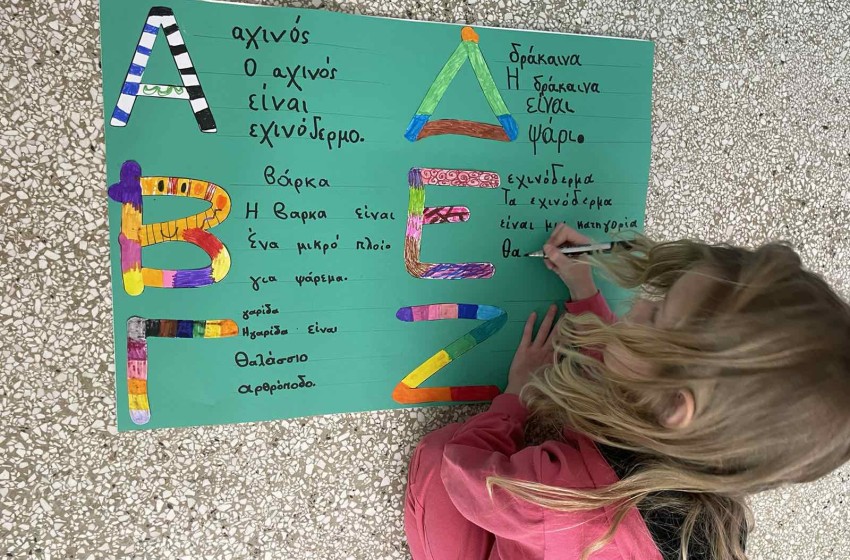 Α
αχινός
Ο αχινός
είναι
εχινόδερμο.
Β
βάρκα
Η βαρκα είναι
ένα μικρό πλοίο
για ψάρεμα.
Γ
γαρίδα
Ηγαρίδα είναι
θαλάσσιο
αρθρόποδο.
Δ
δράκαινα
Η δράκαινα
είναι
ψάρι.
Ε
εχινόδερμα
Τα εχινόδερμα
είναι μια κατηγορία
θα
Ζ